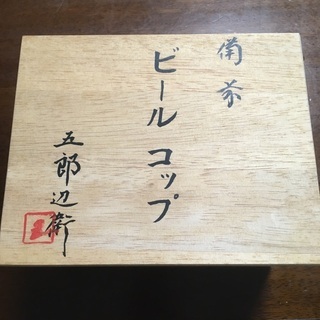 備前
ビールコップ
五郎辺衛